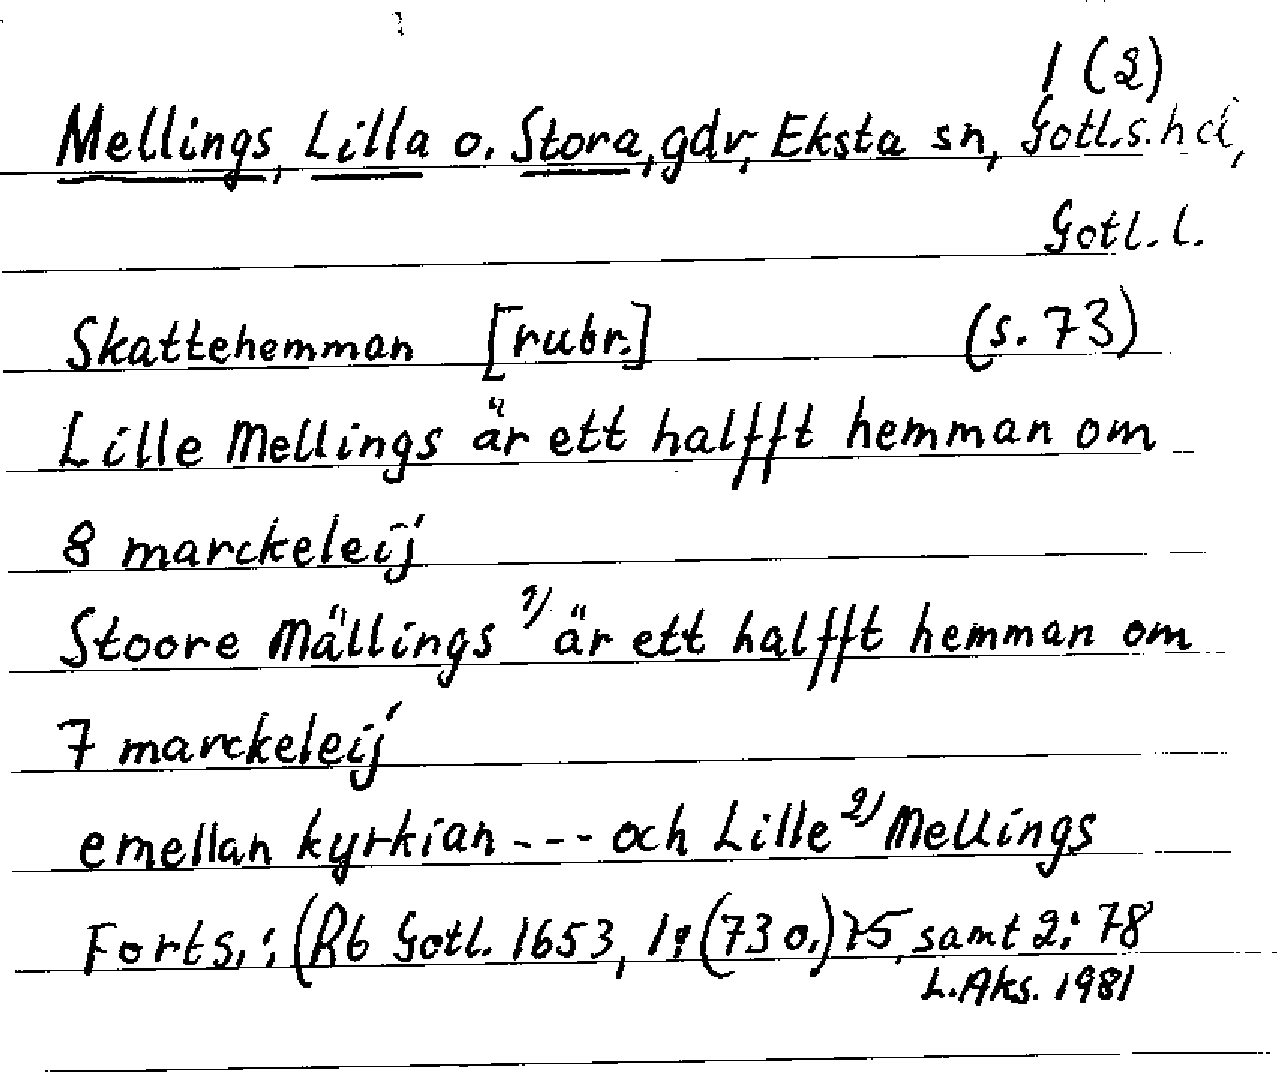 1 (2)
Mellings, Lilla o. Stora, gdr, Eksta sn, Gotl.s. hd,
Gotl. l.
Skattehemman [rubr.] (s. 73)
Lille Mellings är ett halfft hemman om
8 marckeleij
Stoore Mällings 1) är ett halfft hemman om
7 marckeleij
emellan kyrkian --- och Lille 2) Mellings
Forts.: (Rb Gotl. 1653, 1: (73 o.) 75, samt 2: 78
L. Aks. 1981